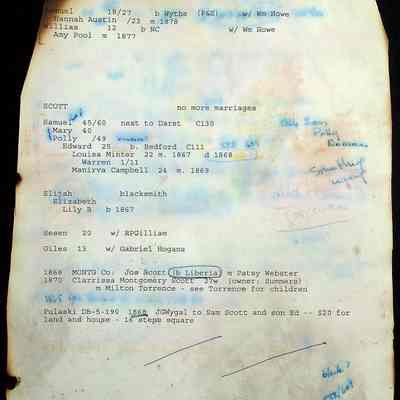 muel 18/27 b Wythe (P&E) w/ Wm Howe
Hannah Austin /23 m 1878
William 12 b NC w/ Wm Howe
Amy Pool m 1877
SCOTT no more marriages
Samuel 45/60 next to Darst C130
Mary 40
Polly /49
Edward 25 b. Bedford C111
Louisa Minter 22 m. 1867 d 1868
Warren 1/11
Manirva Campbell 24 m. 1869
Elijah blacksmith
Elizabeth
Lily B b 1867
Sesen 20 w/ RPGilliam
Giles 13 w/ Gabriel Hogans
1868 MONTG Co: Jos Scott (b Liberia) m Patsy Webster
1870 Clarrissa Montgomery Scott 37w (owner: Summers)
m Milton Torrence - see Torrence for children
Pulaski DB-5-190 1868 JGWygal to Sam Scott and son Ed -- $20 for
land and house - 16 steps square